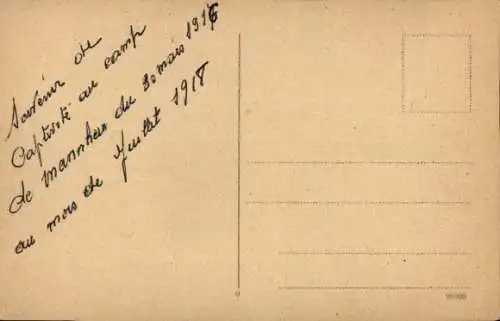 Souvenir de
Captivité au camp
de mannheim du 30 mais 1917
au mois de Juillet 1918
9